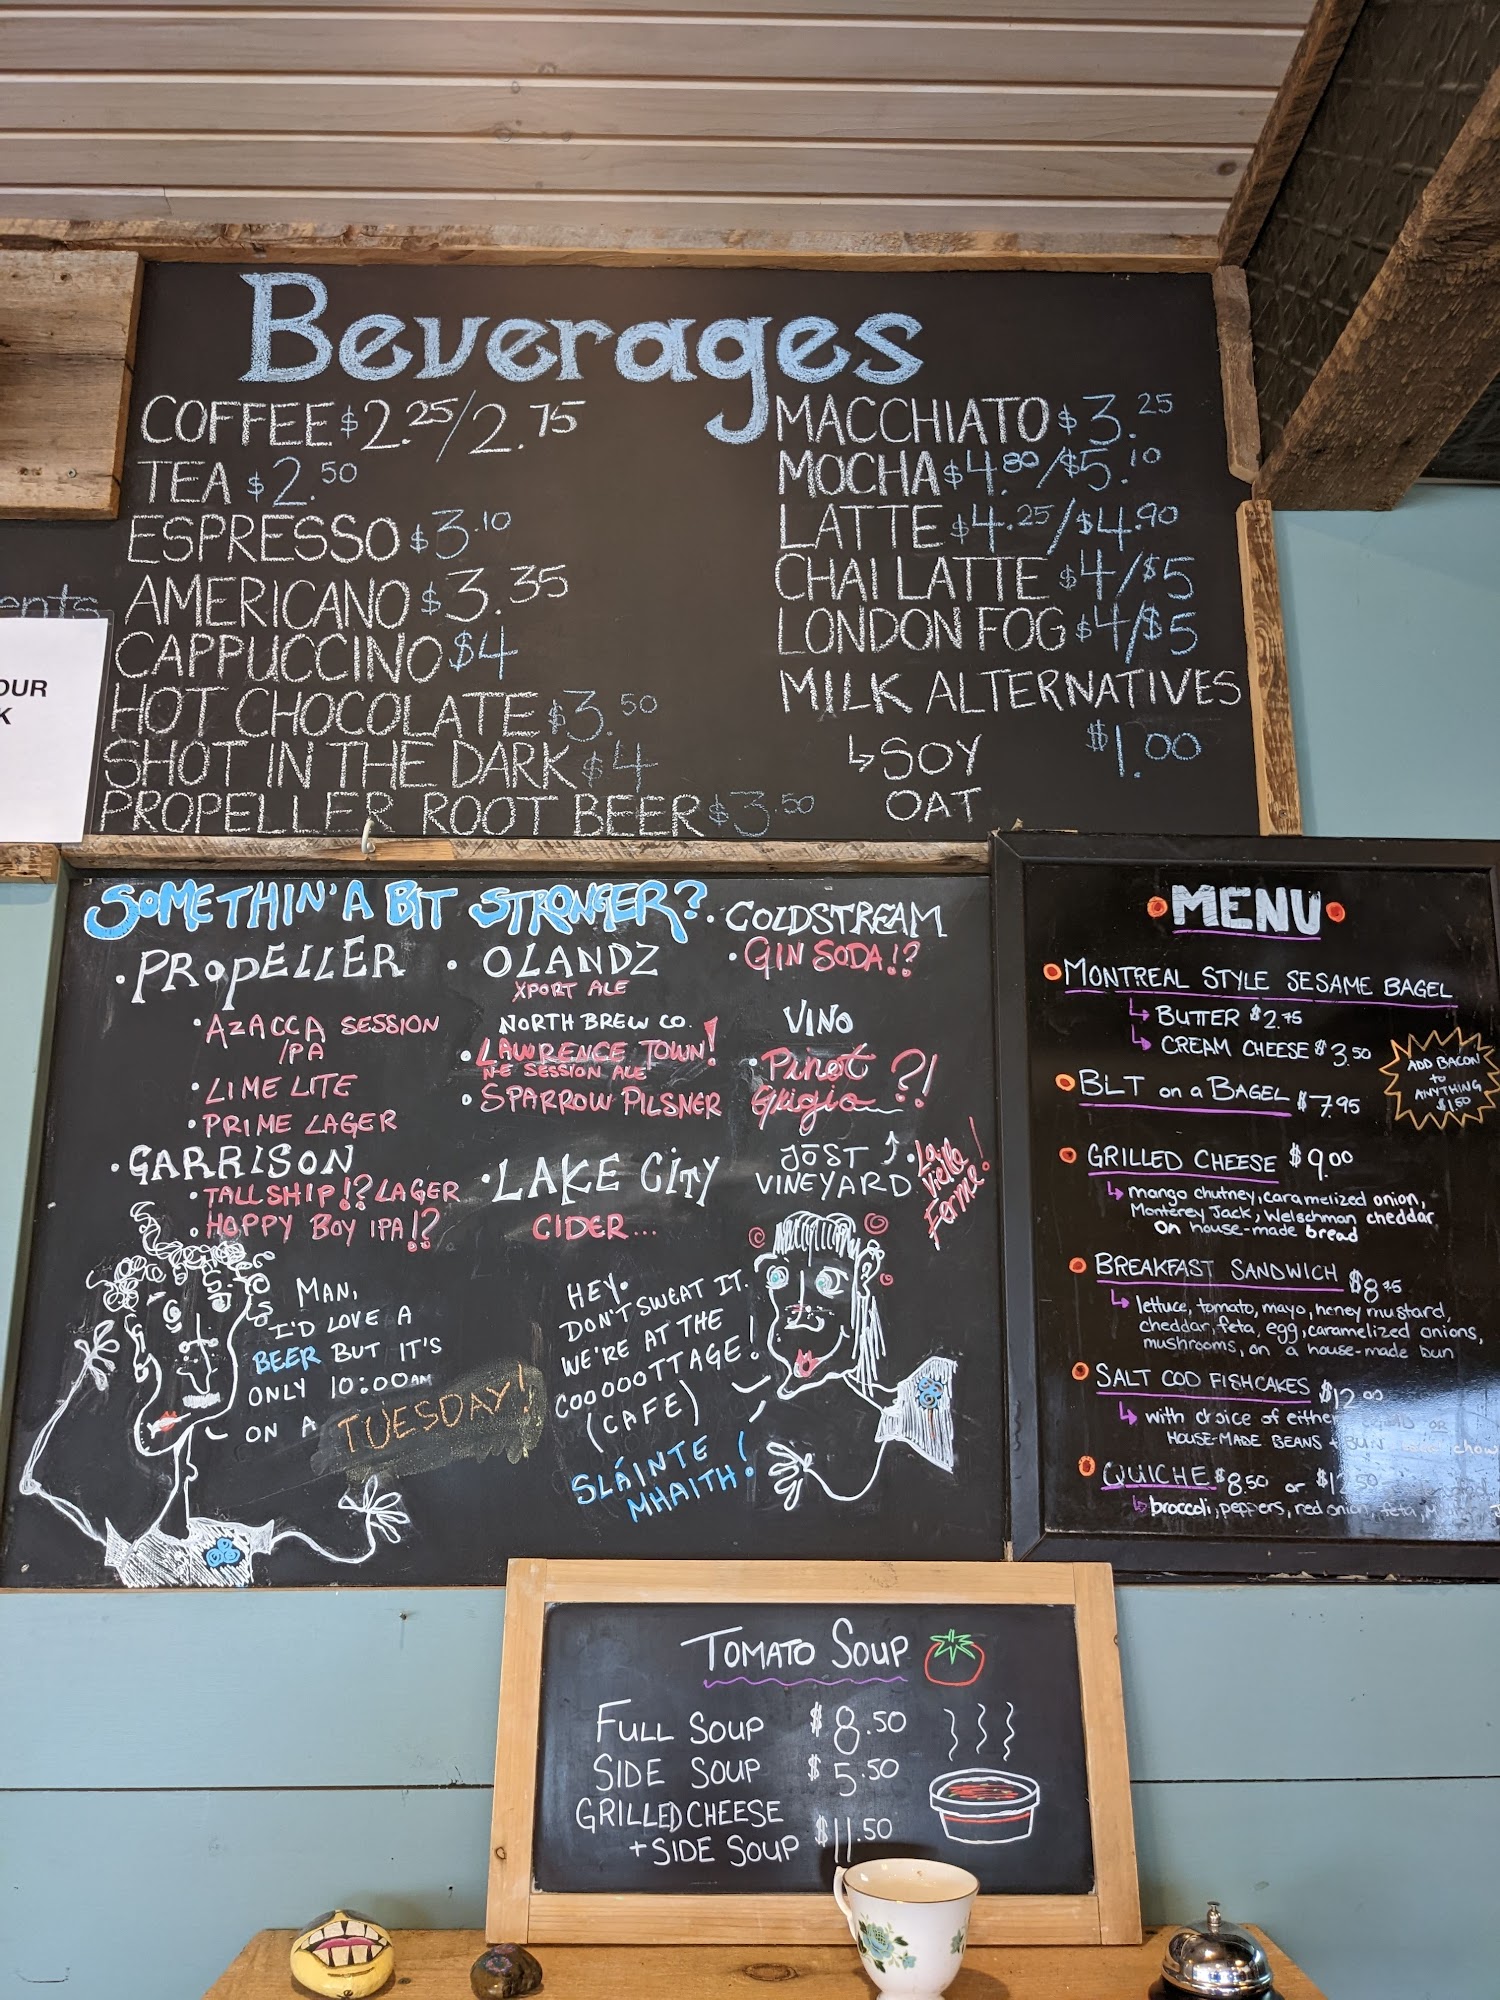 Beverages
COFFEE $2.25/2.75
TEA $2.50
ESPRESSO $3.10
AMERICANO $3.35
CAPPUCCINO $4
HOT CHOCOLATE $3.50
SHOT IN THE DARK $4
PROPELLER ROOT BEER $3.50
MACCHIATO $3.25
MOCHA $4.80/$5.10
LATTE $4.25/$4.90
CHAI LATTE $4/$5
LONDON FOG $4/$5
MILK ALTERNATIVES
↳SOY $1.00
OAT
ents
OUR
K
SOMETHIN' A BIT STRONGER?
• PROPELLER
• AZACCA SESSION
IPA
• LIME LITE
• PRIME LAGER
• GARRISON
• TALL SHIP!? LAGER
• HOPPY BOY IPA!?
• OLANDZ
XPORT ALE
NORTH BREW CO.
• LAWRENCE TOWN!
N-E SESSION ALE
• SPARROW PILSNER
• LAKE CITY
CIDER...
• COLDSTREAM
• GIN SODA!?
VINO
• Pinot
Grigio ?!
JOST
VINEYARD
• La
Vielle
Ferme!
MAN,
I'D LOVE A
BEER BUT IT'S
ONLY 10:00AM
ON A TUESDAY!
HEY.
DON'T SWEAT IT.
WE'RE AT THE
COOOOOTTAGE!
(CAFE)
SLÁINTE
MHAITH!
MENU
MONTREAL STYLE SESAME BAGEL
↳ BUTTER $2.75
↳ CREAM CHEESE $3.50
ADD BACON
to
ANYTHING
$1.50
BLT on a BAGEL $7.95
GRILLED CHEESE $9.00
↳ mango chutney, caramelized onion,
Monterey Jack, Welschman cheddar
on house-made bread
BREAKFAST SANDWICH $8.75
↳ lettuce, tomato, mayo, honey mustard,
cheddar, feta, egg, caramelized onions,
mushrooms, on a house-made bun
SALT COD FISHCAKES $12.00
↳ with choice of either OR
HOUSE-MADE BEANS + BUN chow
QUICHE $8.50 or
↳ broccoli, peppers, red onion, feta,
TOMATO SOUP
FULL SOUP $8.50
SIDE SOUP $5.50
GRILLED CHEESE
+ SIDE SOUP $11.50